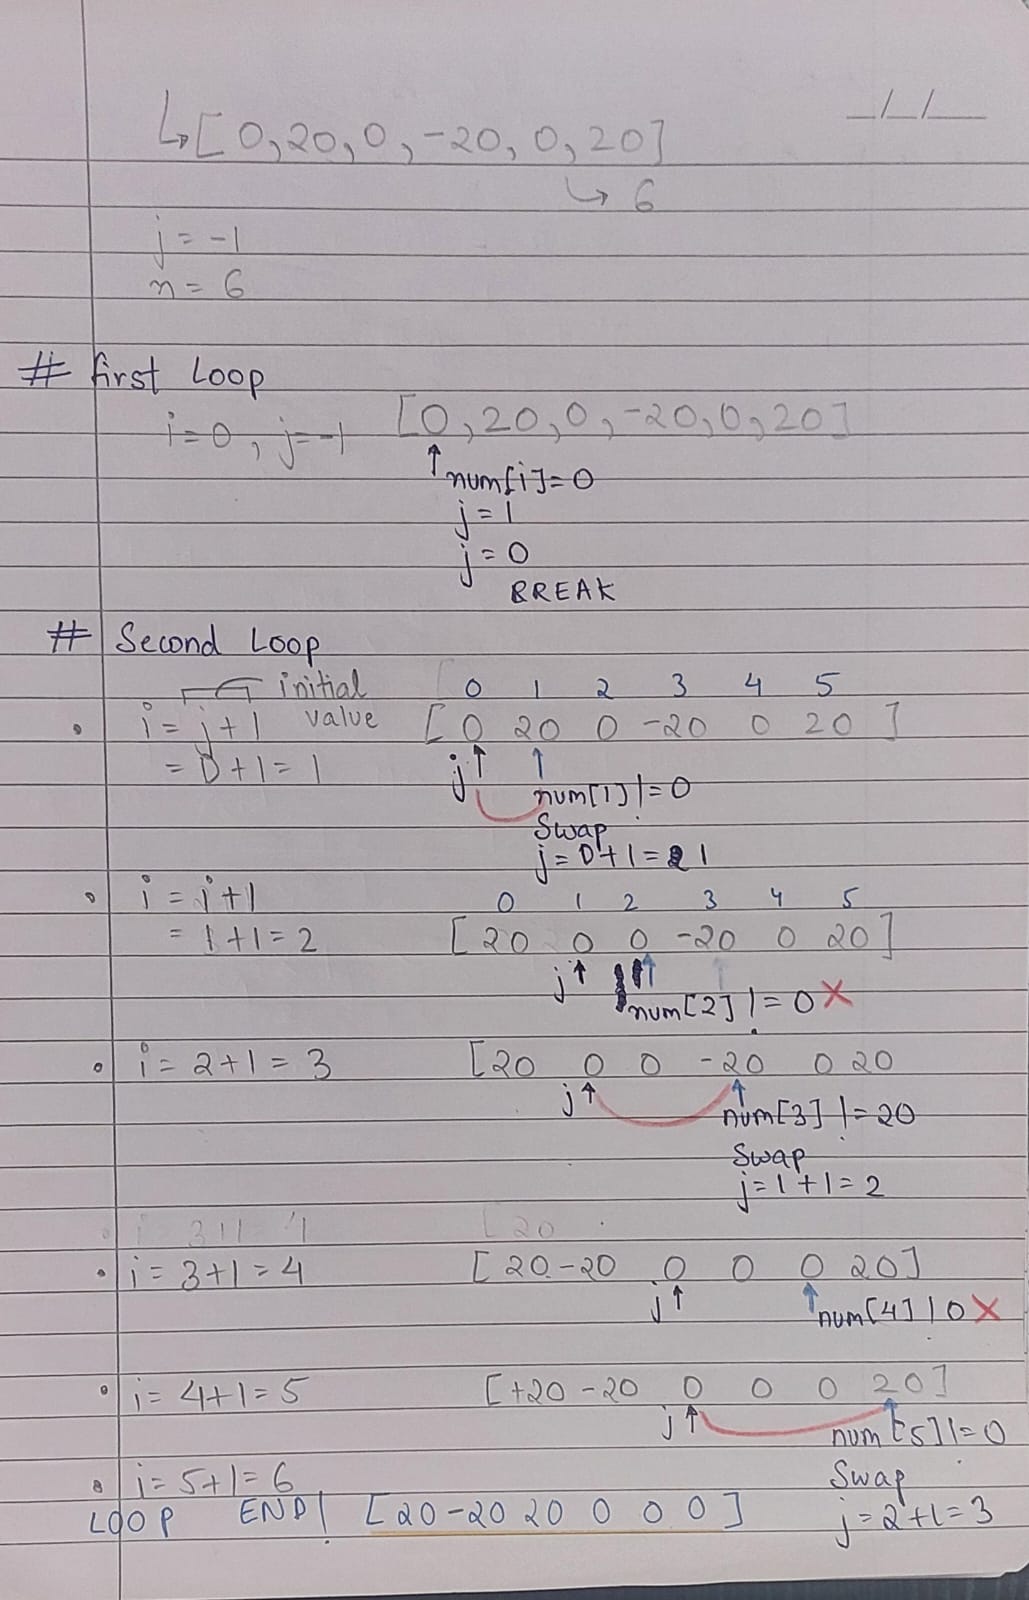 __/__/____
↳ [ 0, 20, 0, -20, 0, 20 ]
↳ 6
j = -1
n = 6
# first Loop
i = 0 , j = -1 [0, 20, 0, -20, 0, 20]
↑ num[i] = 0
j = 1
j = 0
BREAK
# Second Loop
initial 0 1 2 3 4 5
i = j + 1 value [ 0 20 0 -20 0 20 ]
= 0 + 1 = 1 j↑ ↑
num[1] != 0
Swap
j = 0 + 1 = 1
i = i + 1 0 1 2 3 4 5
= 1 + 1 = 2 [ 20 0 0 -20 0 20 ]
j↑ ↑
num[2] != 0 ×
i = 2 + 1 = 3 [ 20 0 0 -20 0 20
j↑ ↑
num[3] != 20
Swap
j = 1 + 1 = 2
[ 20
i = 3 + 1 = 4 [ 20 -20 0 0 0 20 ]
j↑ ↑ num[4] ! 0 ×
i = 4 + 1 = 5 [ +20 -20 0 0 0 20 ]
j↑ ↑
num[5] != 0
i = 5 + 1 = 6 Swap
LOOP END! [ 20 -20 20 0 0 0 ] j = 2 + 1 = 3